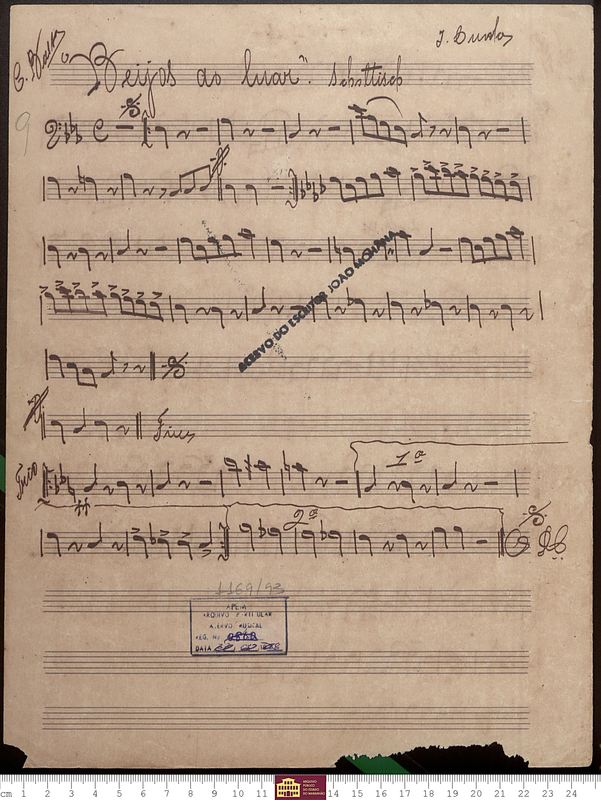 "Beijos ao luar". Schottisch
ACERVO DO ESCRITOR JOÃO MOHANA
Fim
Trio
1ª
2ª
DC
1169/93
APEM
ARQUIVO PARTICULAR
ACERVO MUSICAL
REG. Nº
DATA
cm 1 2 3 4 5 6 7 8 9 10 11 ARQUIVO PÚBLICO DO ESTADO DO MARANHÃO 14 15 16 17 18 19 20 21 22 23 24